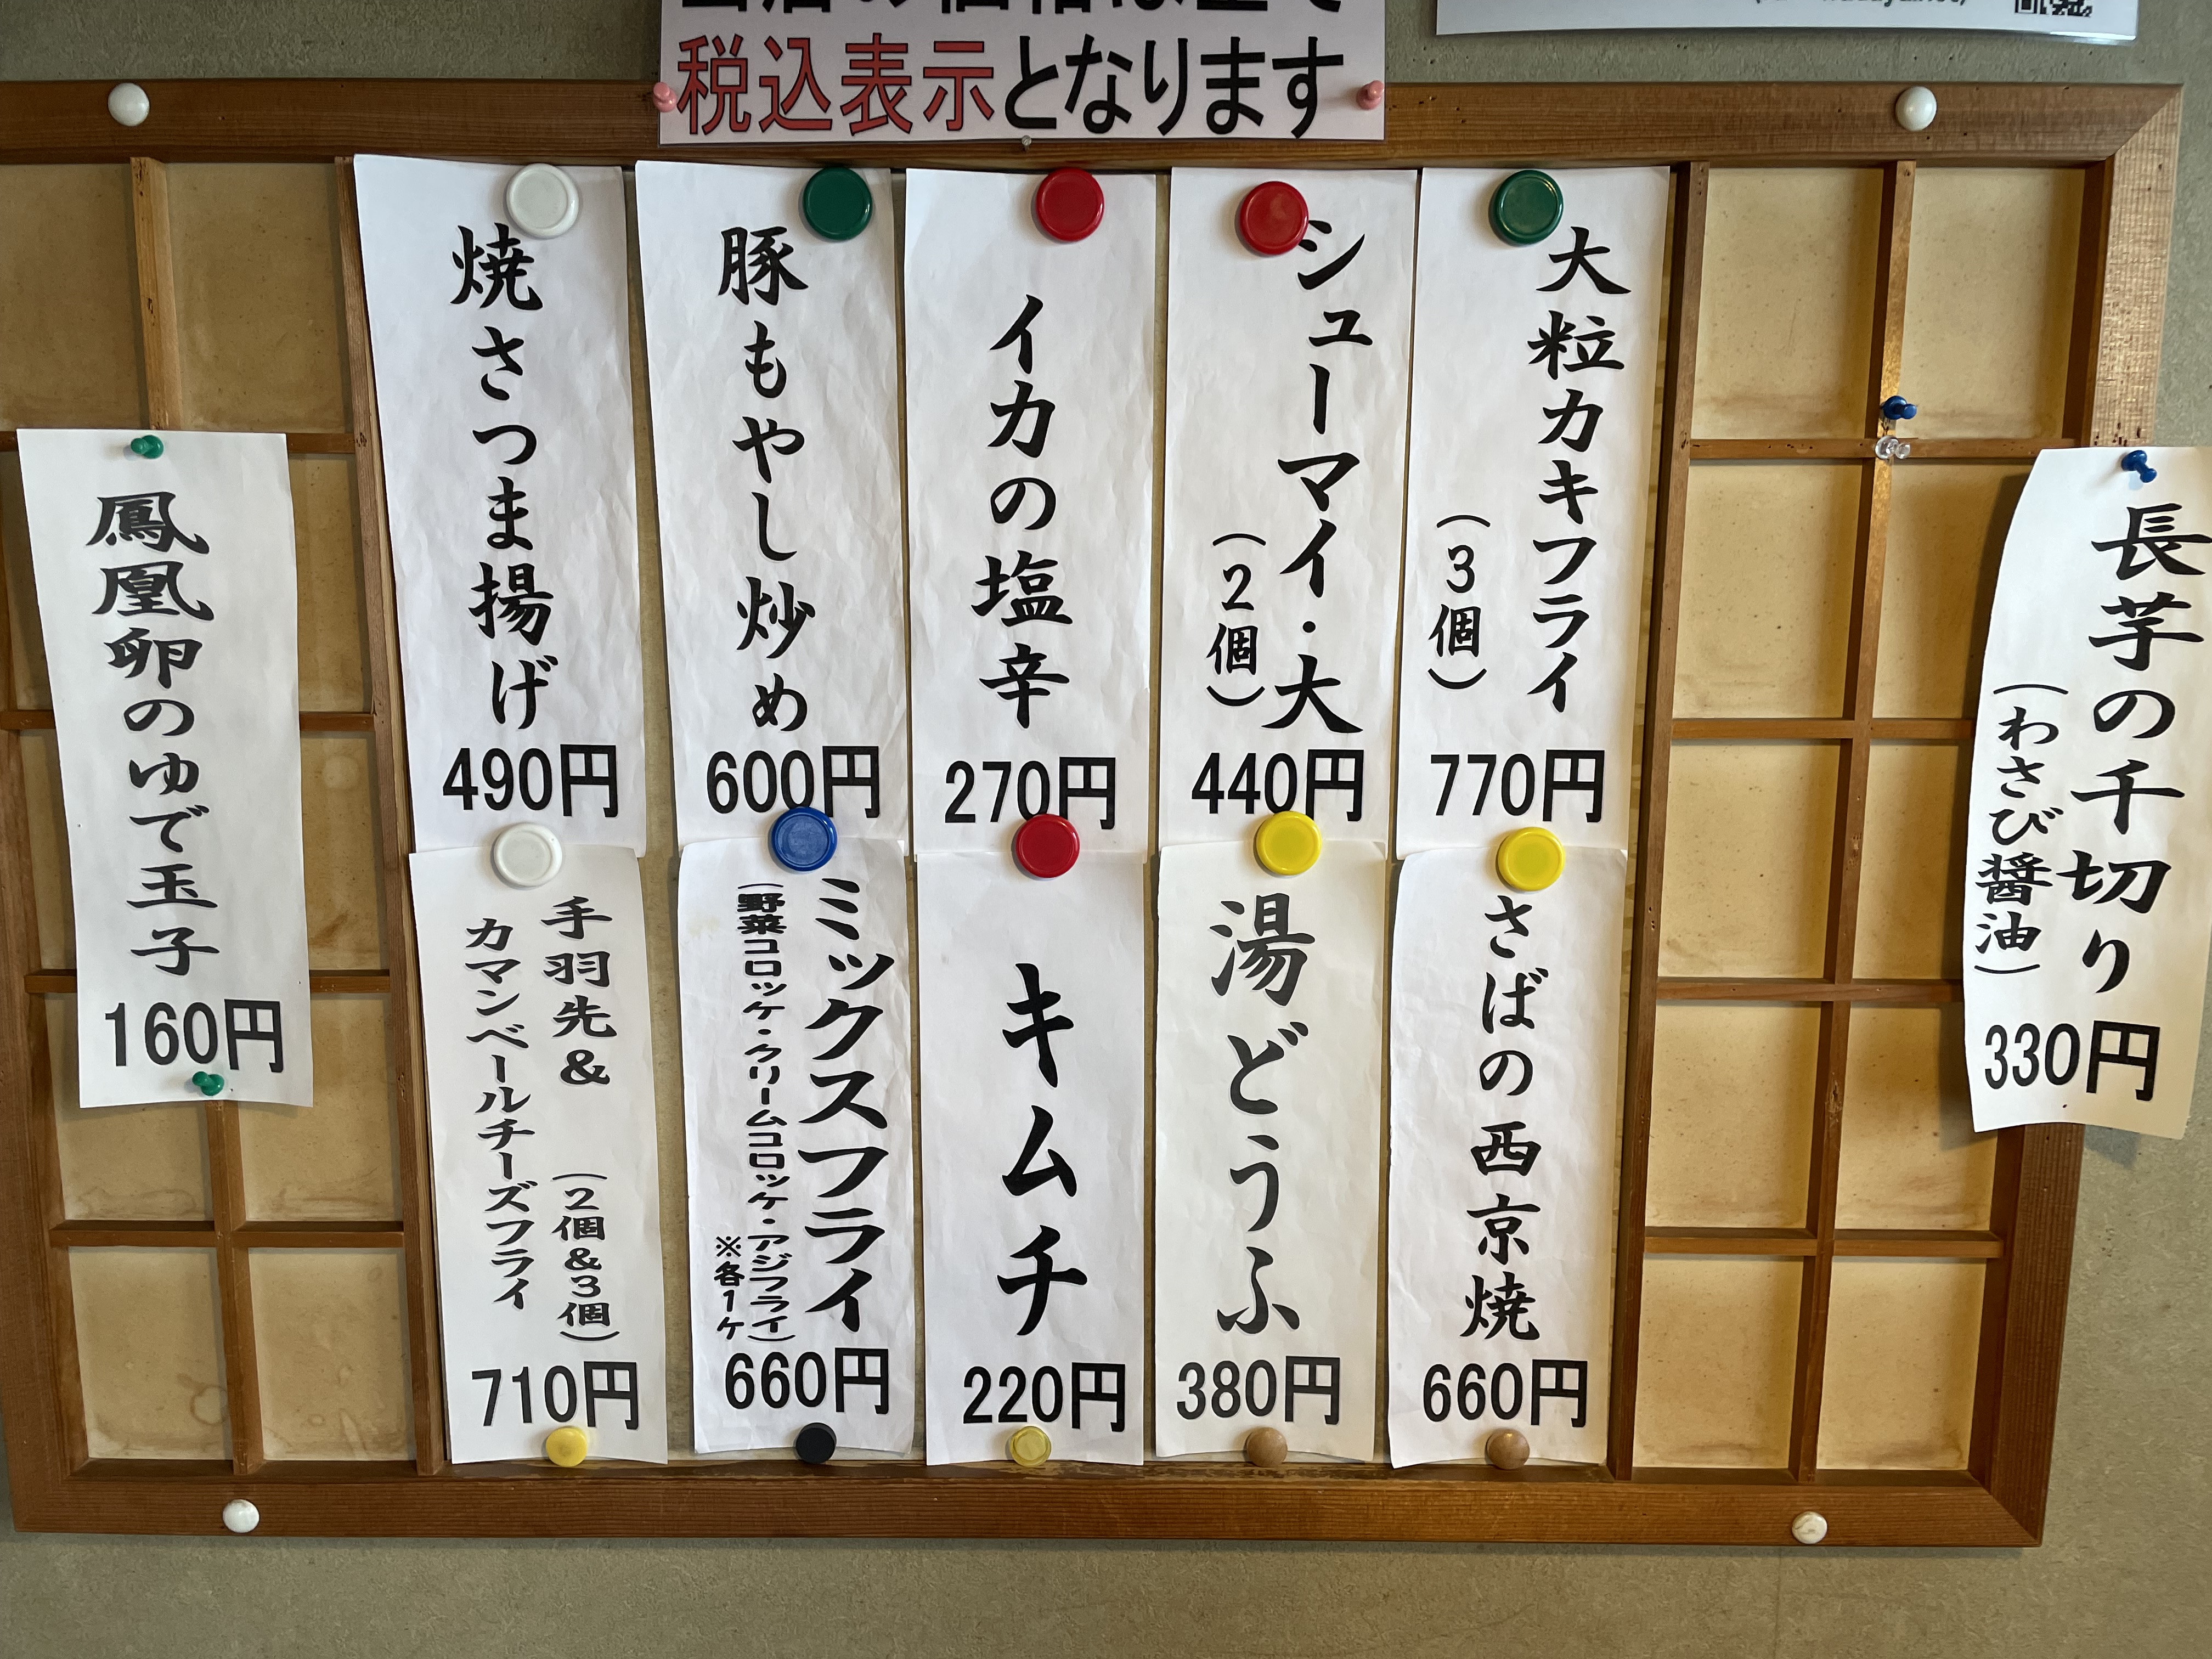 当店の価格は全て
税込表示となります
長芋の千切り
（わさび醤油）
330円
大粒カキフライ
（3個）
770円
シューマイ・大
（2個）
440円
イカの塩辛
270円
豚もやし炒め
600円
焼さつま揚げ
490円
さばの西京焼
660円
湯どうふ
380円
キムチ
220円
ミックスフライ
（野菜コロッケ・クリームコロッケ・アジフライ）
※各1ケ
660円
手羽先& （2個&3個）
カマンベールチーズフライ
710円
鳳凰卵のゆで玉子
160円